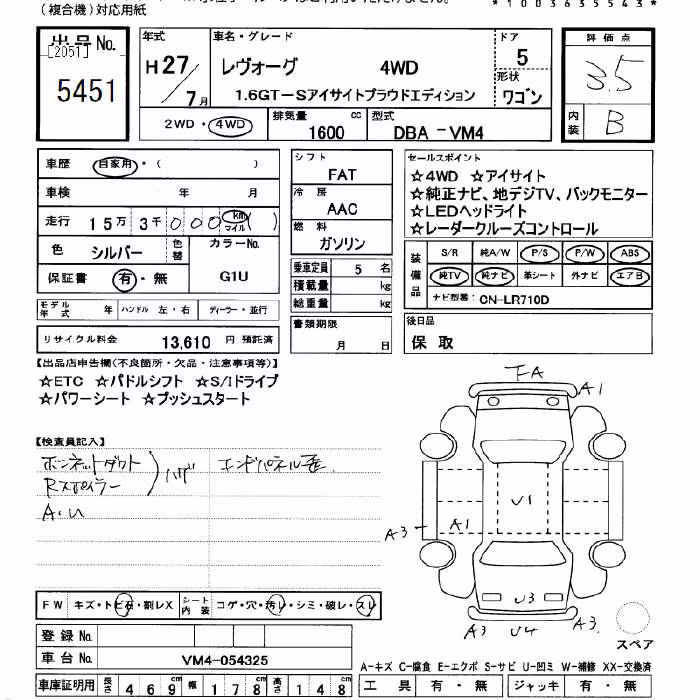 (複合機)対応用紙
*1003635543*
出品No. [2051] 5451
年式 H27/7月
車名・グレード レヴォーグ 4WD
1.6GT-Sアイサイトプラウドエディション
ドア 5
形状 ワゴン
評価点 3.5
内装 B
2WD・4WD
排気量 1600 cc
型式 DBA-VM4
車歴 自家用・( )
車検 年 月
走行 15万3千000 km マイル ( )
色 シルバー 色替 カラーNo. G1U
保証書 有・無
モデル年式 年 ハンドル 左・右 ディーラー・並行
リサイクル料金 13,610 円 預託済
シフト FAT
冷房 AAC
燃料 ガソリン
乗車定員 5 名
積載量 kg
総重量 kg
書類期限 月 日
セールスポイント
☆4WD ☆アイサイト
☆純正ナビ、地デジTV、バックモニター
☆LEDヘッドライト
☆レーダークルーズコントロール
装備品 S/R 純A/W P/S P/W ABS
純TV 純ナビ 革シート 外ナビ エアB
ナビ型番: CN-LR710D
後日品
保取
【出品店申告欄(不良箇所・欠品・注意事項等)】
☆ETC ☆パドルシフト ☆S/Iドライブ
☆パワーシート ☆プッシュスタート
【検査員記入】
ボンネットダクト エンドパネル歪
Rスポイラー ハゲ
A・U
下A
A1
U1
A3 A1
A3
U3
A3 U4 A3
スペア
FW キズ・トビ石・割レX シート内装 コゲ・穴・汚レ・シミ・破レ・スレ
登録No.
車台No. VM4-054325
車庫証明用 長さ 469 cm 幅 178 cm 高さ 148 cm
A-キズ C-腐食 E-エクボ S-サビ U-凹ミ W-補修 XX-交換済
工具 有・無 ジャッキ 有・無